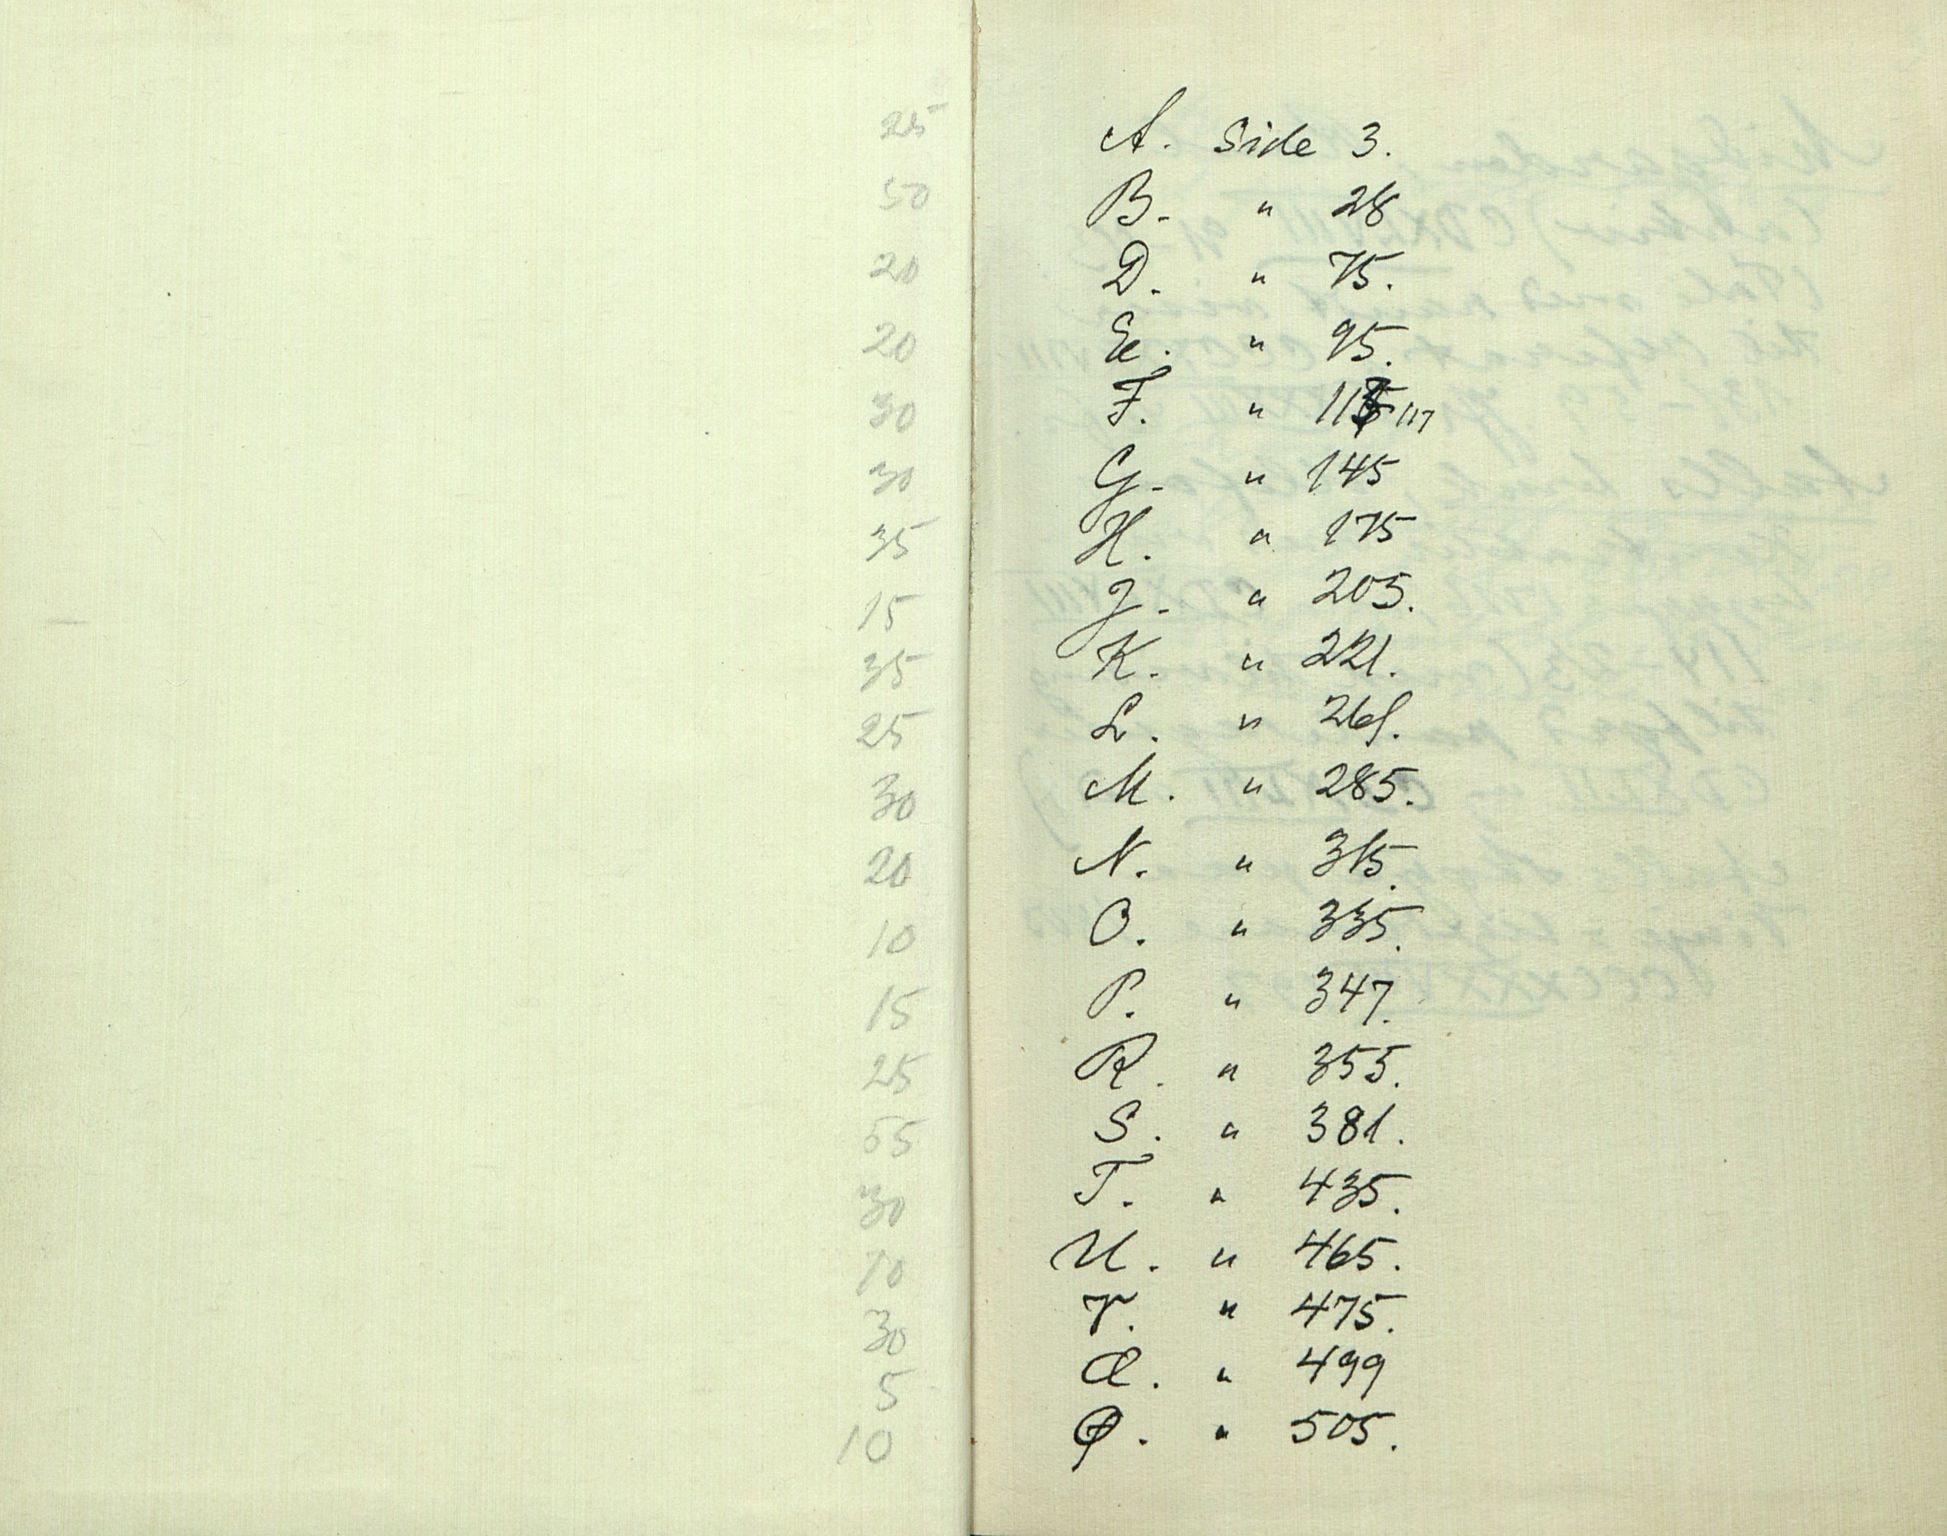 25
50
20
20
30
30
35
15
35
25
30
20
10
15
25
55
30
10
30
5
10
A. Side 3.
B. " 28
D. " 75.
E. " 95.
F. " 115 117
G. " 145
H. " 175
J. " 205.
K. " 221.
L. " 261.
M. " 285.
N. " 315.
O. " 335.
P. " 347.
R. " 355.
S. " 381.
T. " 435.
U. " 465.
V. " 475.
Æ. " 499
Ø. " 505.